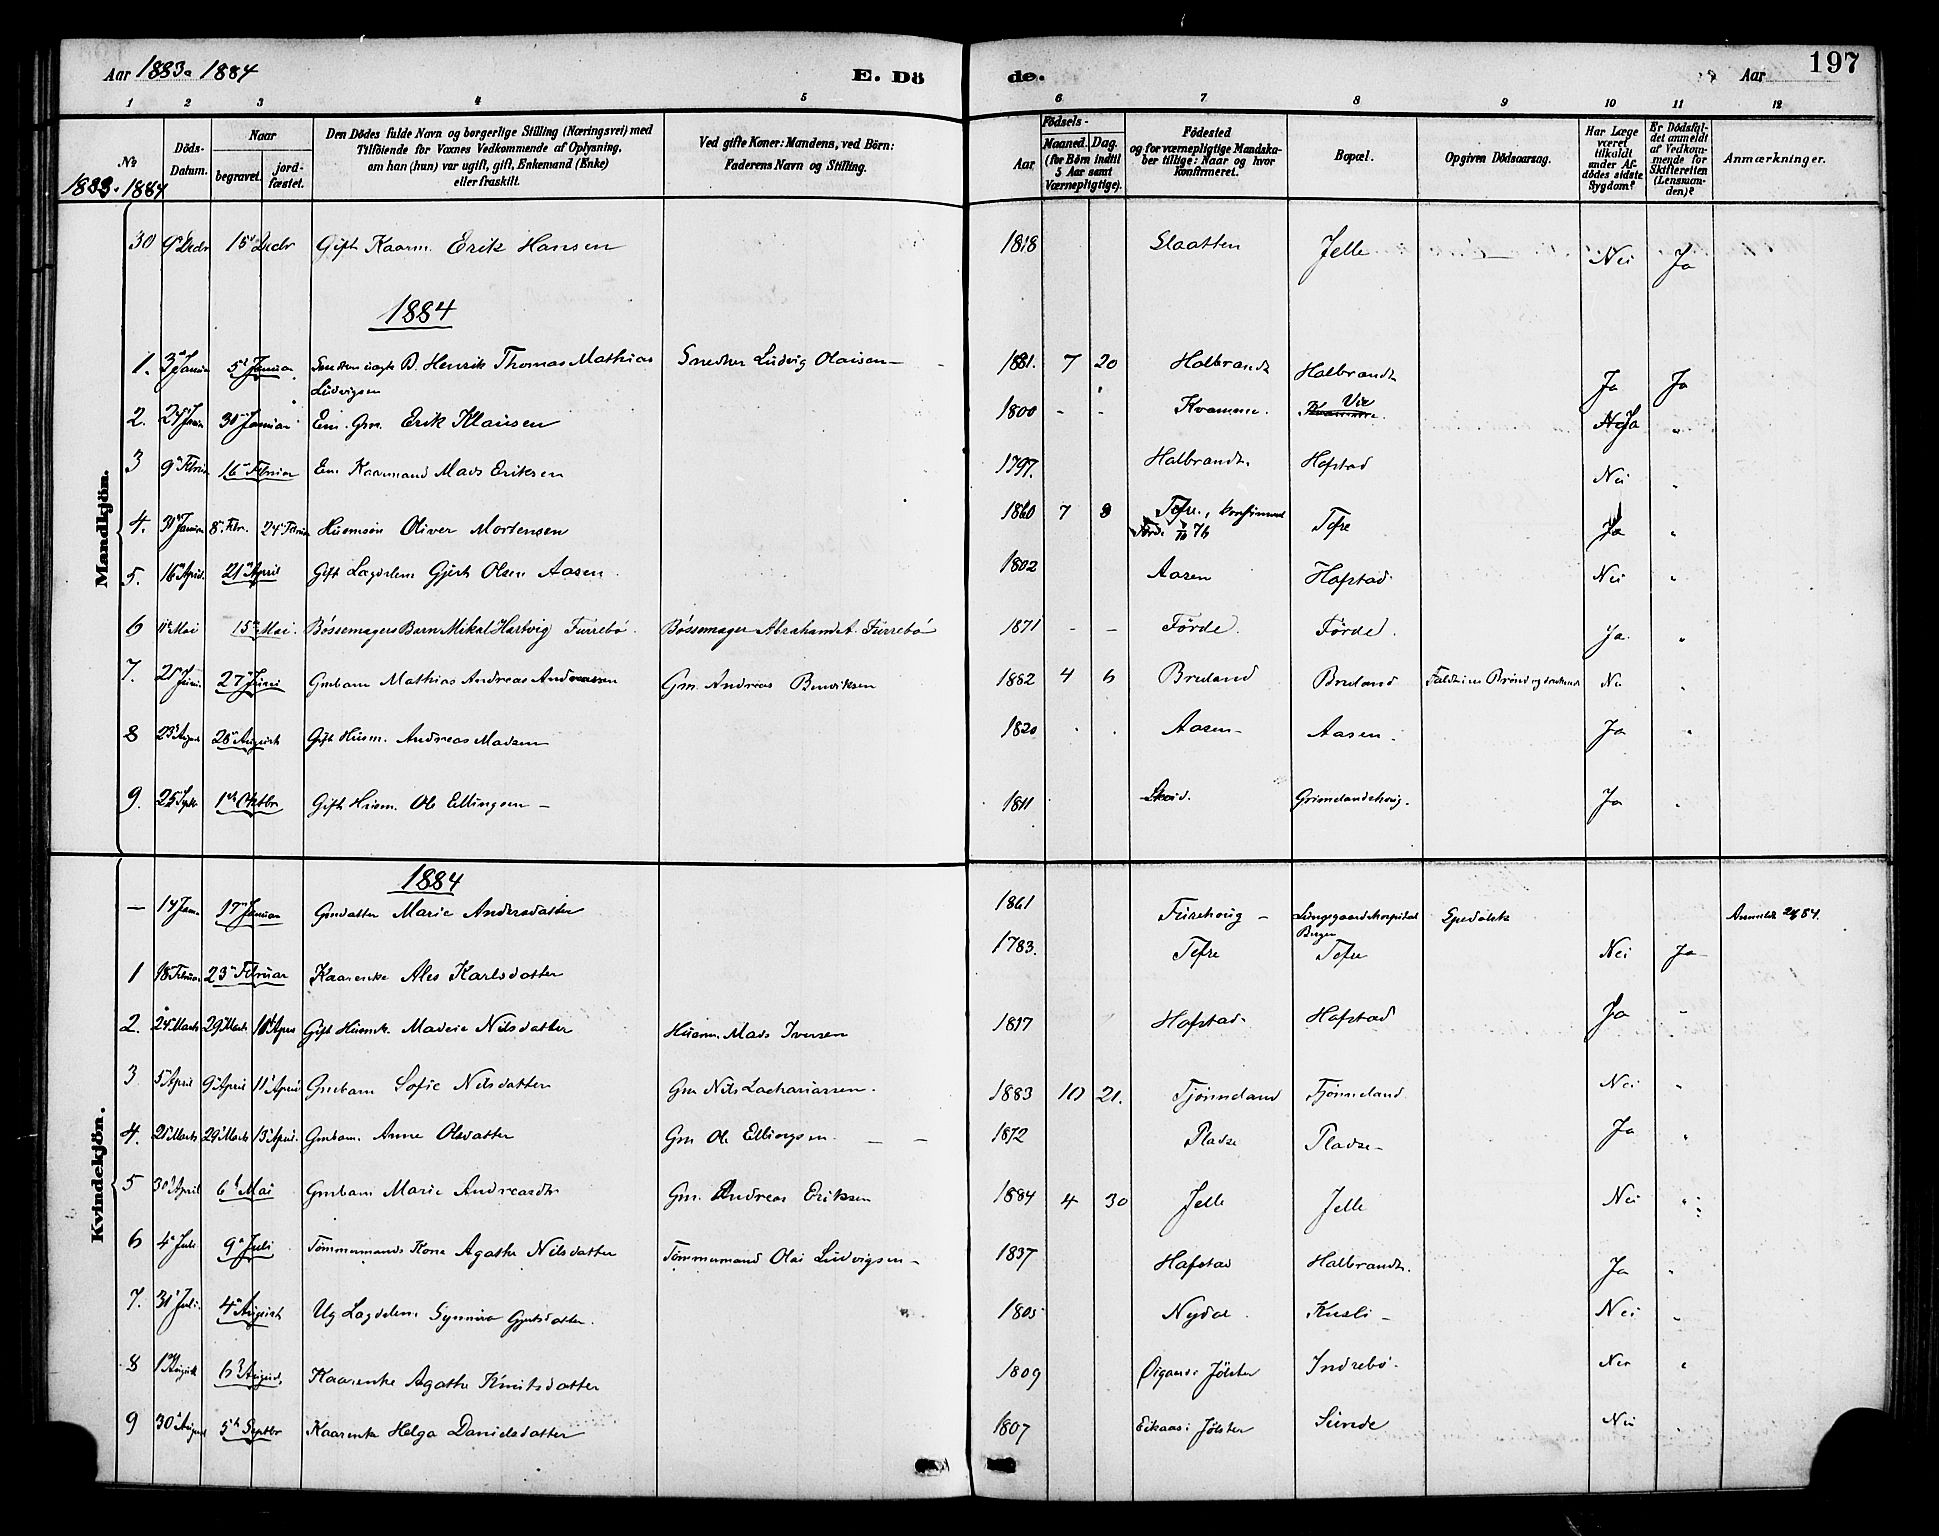 Aar 1883 a 1884 E. Dö de. Aar 197
1 2 3 4 5 6 7 8 9 10 11 12
No 1883. 1884
Döds-Datum.
Naar begravet. jordfæstet.
Den Dödes fulde Navn og borgerlige Stilling (Næringsvei) med
Tilföiende for Voxnes Vedkommende af Oplysning,
om han (hun) var ugift, gift, Enkemand (Enke)
eller fraskilt.
Ved gifte Koner: Mandens, ved Börn:
Faderens Navn og Stilling.
Födsels-
Aar Maaned. Dag.
(for Börn indtil
5 Aar samt
Værnepligtige).
Födested
og for værnepligtige Mandska-
ber tillige: Naar og hvor
konfirmeret.
Bopæl.
Opgiven Dödsaarsag.
Har Læge
været
tilkaldt
under Af-
dödes sidste
Sygdom?
Er Dödsfal-
det anmeldt
af Vedkom-
mende for
Skifteretten
(Lensman-
den)?
Anmærkninger.
Mandkjön.
30 9 Decbr 15 Decbr Gift Kaarm. Erik Hansen 1818 Slaatten Jelle Nei Ja
1884
1. 3 Januar 5 Januar B. Henrik Thomas Mathias Snedker Ludvig Olaisen 1881. 7 20 Halbrandt Halbrandt Ja Ja
Ludvigsen
2. 30 Januar Em. Gm. Erik Klausen 1800 - - Kvamme. Vie Ja "
3 9 Februar 16 Februar Em Kaarmand Mads Eriksen 1797. Halbrandt Hafstad Nei "
4. 31 Januar 8 Febr. 24 Februar Husmsön Oliver Mortensen 1860 7 8 Tefre., konfirmeret Tefre Ja "
Förde
5. 16 April 21 April Gift Lægdslem Gjert Olsen Aasen 1802 Aasen Hafstad Nei "
6 11 Mai 15 Mai. Bössemagers Barn Mikal Hartvig Furrebö. Bössemager Abraham A. Furrebö 1871 - - Förde. Förde. Ja. "
7. 25 Juni 27 Juni Gmbarn Mathias Andreas Andreassen Gm. Andreas Bendiksen 1882 4 6 Bruland Bruland Faldt i en Brönd og druknede Nei "
8 23 August 28 August Gift Husm. Andreas Madsen 1820 Aasen Aasen. Ja "
9. 25 Septr 1 Oktbr Gift Husm. Ole Ellingsen 1811 Grimelandshoug. Ja "
Kvindekjön.
1884
— 14 Jan. 17 Januar Gmdatter Marie Andersdatter 1861 Furehoug Lungegaardshospital Spedalsk Anmeldt
Bergen
1 18 Februar 23 Februar Kaarenke Ales Karlsdatter 1783. Tefre Tefre Nei Ja
2. 24 Marts 29 Marts April Gift Husmk. Madsie Nilsdatter Husm. Mads Iversen 1817 Hafstad Hafstad Ja
3 5 April 9 April 11 April Gmbarn Sofie Nilsdatter Gm Nils Zachariassen. 1883 10 21. Tjönneland Tjönneland Nei "
4. Marts 29 Marts 13 April. Gmbarn. Anne Olsdatter Gm Ole Ellingsen 1872 Pladse Pladse Ja "
5 30 April 6 Mai Gmbarn Marie Andreasdtr Gm. Andreas Eriksen 1884 4 30 Jelle Jelle Nei "
6 4 Juli 9 Juli Tömmermands Kone Agathe Nilsdatter Tömmermand Olai Ludvigsen 1837 Hafstad Halbrandt. Ja "
7. 31 Juli. 4 August Ug Lægdslem Synneva Gjertsdatter. 1805 Nydal Kusli Nei "
8 1 August 6 August Kaarenke Agathe Knutsdatter 1809 Jölster Indrebö. Nei "
9 30 August 5 Septbr Kaarenke Helga Danielsdatter 1807 Eikaas i Jölster Sunde Nei "